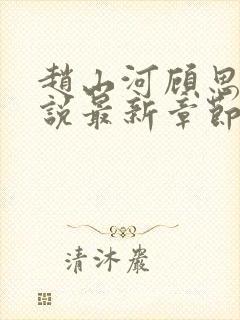 趙山河顧思
說最新章節
清沐嚴